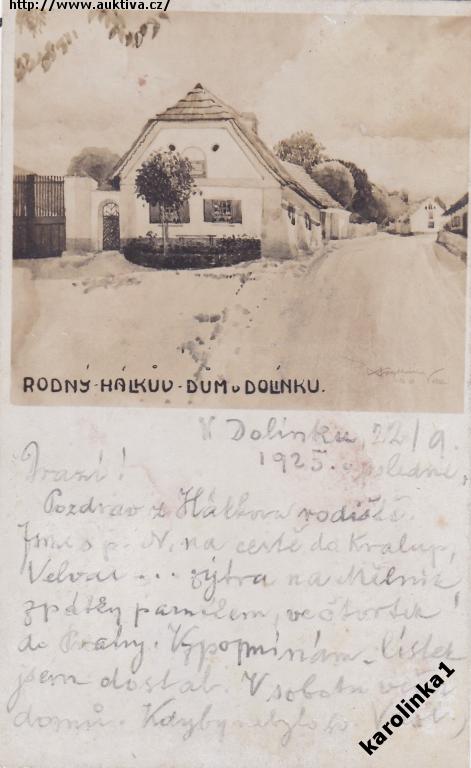 http://www.auktiva.cz/
RODNÝ·HÁLKŮV·DŮM v DOLÍNKU.
V Dolínku 22/9.
1925. v poledne,
Drazí!
Pozdrav z Hálkova rodiště.
Jsme s p. N. na cestě do Kralup,
Velvar ... zýtra na Mělník
zpátky parníkem, ve čtvrtek
do Prahy. Vzpomínám. Lístek
jsem dostal. V sobotu
domů. Kdyby
karolinka1